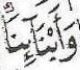 وَأَبْنَآئِنَا